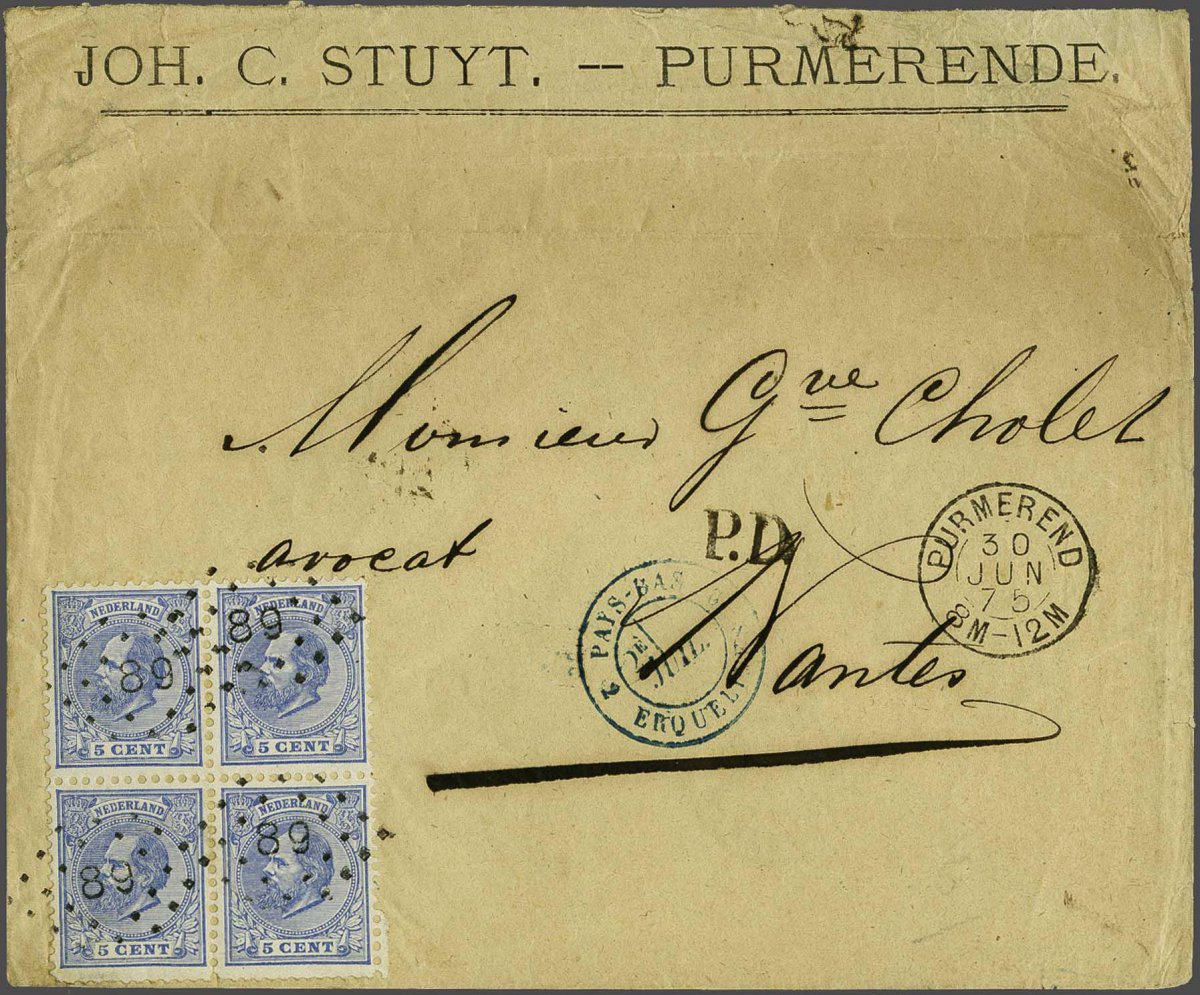 JOH. C. STUYT. -- PURMERENDE.
Monsieur Gve Cholet
avocat
P.D.
PURMEREND
30
JUN
75
8M-12M
2 PAYS-BAS
1E
JUIL.
ERQUEL
Nantes
NEDERLAND
89
5 CENT
NEDERLAND
89
5 CENT
NEDERLAND
89
5 CENT
NEDERLAND
89
5 CENT